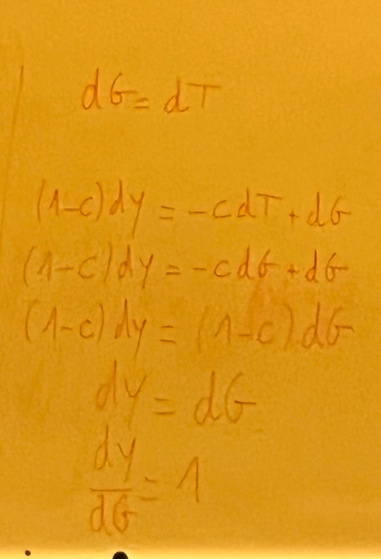 dG = dT
(1-c)dy = -cdT + dG
(1-c)dy = -cdG + dG
(1-c)dy = (1-c)dG
dy = dG
dy/dG = 1